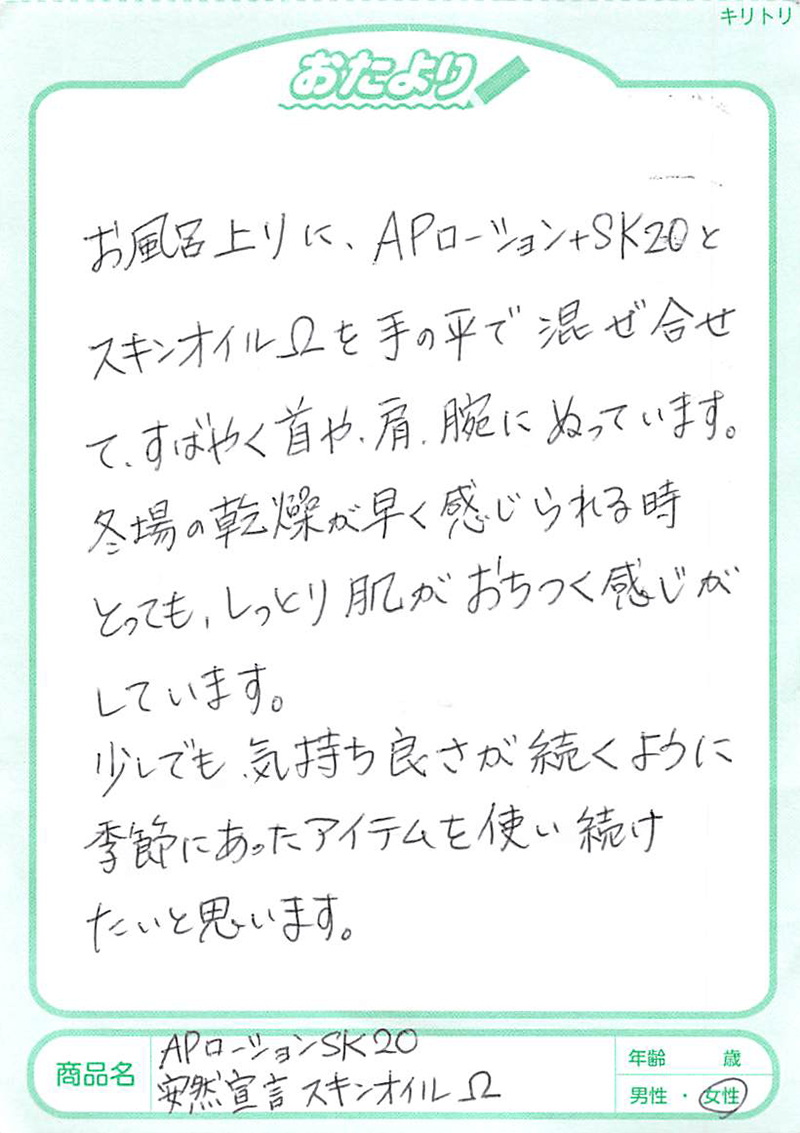 キリトリ
おたより
お風呂上りに、APローション+SK20と
スキンオイルΩを手の平で混ぜ合せ
て、すばやく首や、肩、腕にぬっています。
冬場の乾燥が早く感じられる時
とっても、しっとり肌がおちつく感じが
しています。
少しでも、気持ち良さが続くように
季節にあったアイテムを使い続け
たいと思います。
商品名
APローションSK20
安然宣言スキンオイルΩ
年齢 歳
男性・女性